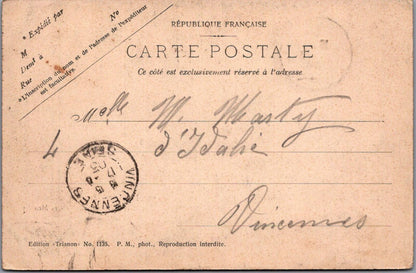 RÉPUBLIQUE FRANÇAISE
CARTE POSTALE
Ce côté est exclusivement réservé à l'adresse
* Expédié par No
M
Dem^t à
Rue
* L'inscription du nom et de l'adresse de l'expéditeur
est facultative.
Melle M. Marty
4 d'Idalie
Vincennes
VINCENNES
SEINE
Edition «Trianon» No. 1135. P. M., phot., Reproduction interdite.